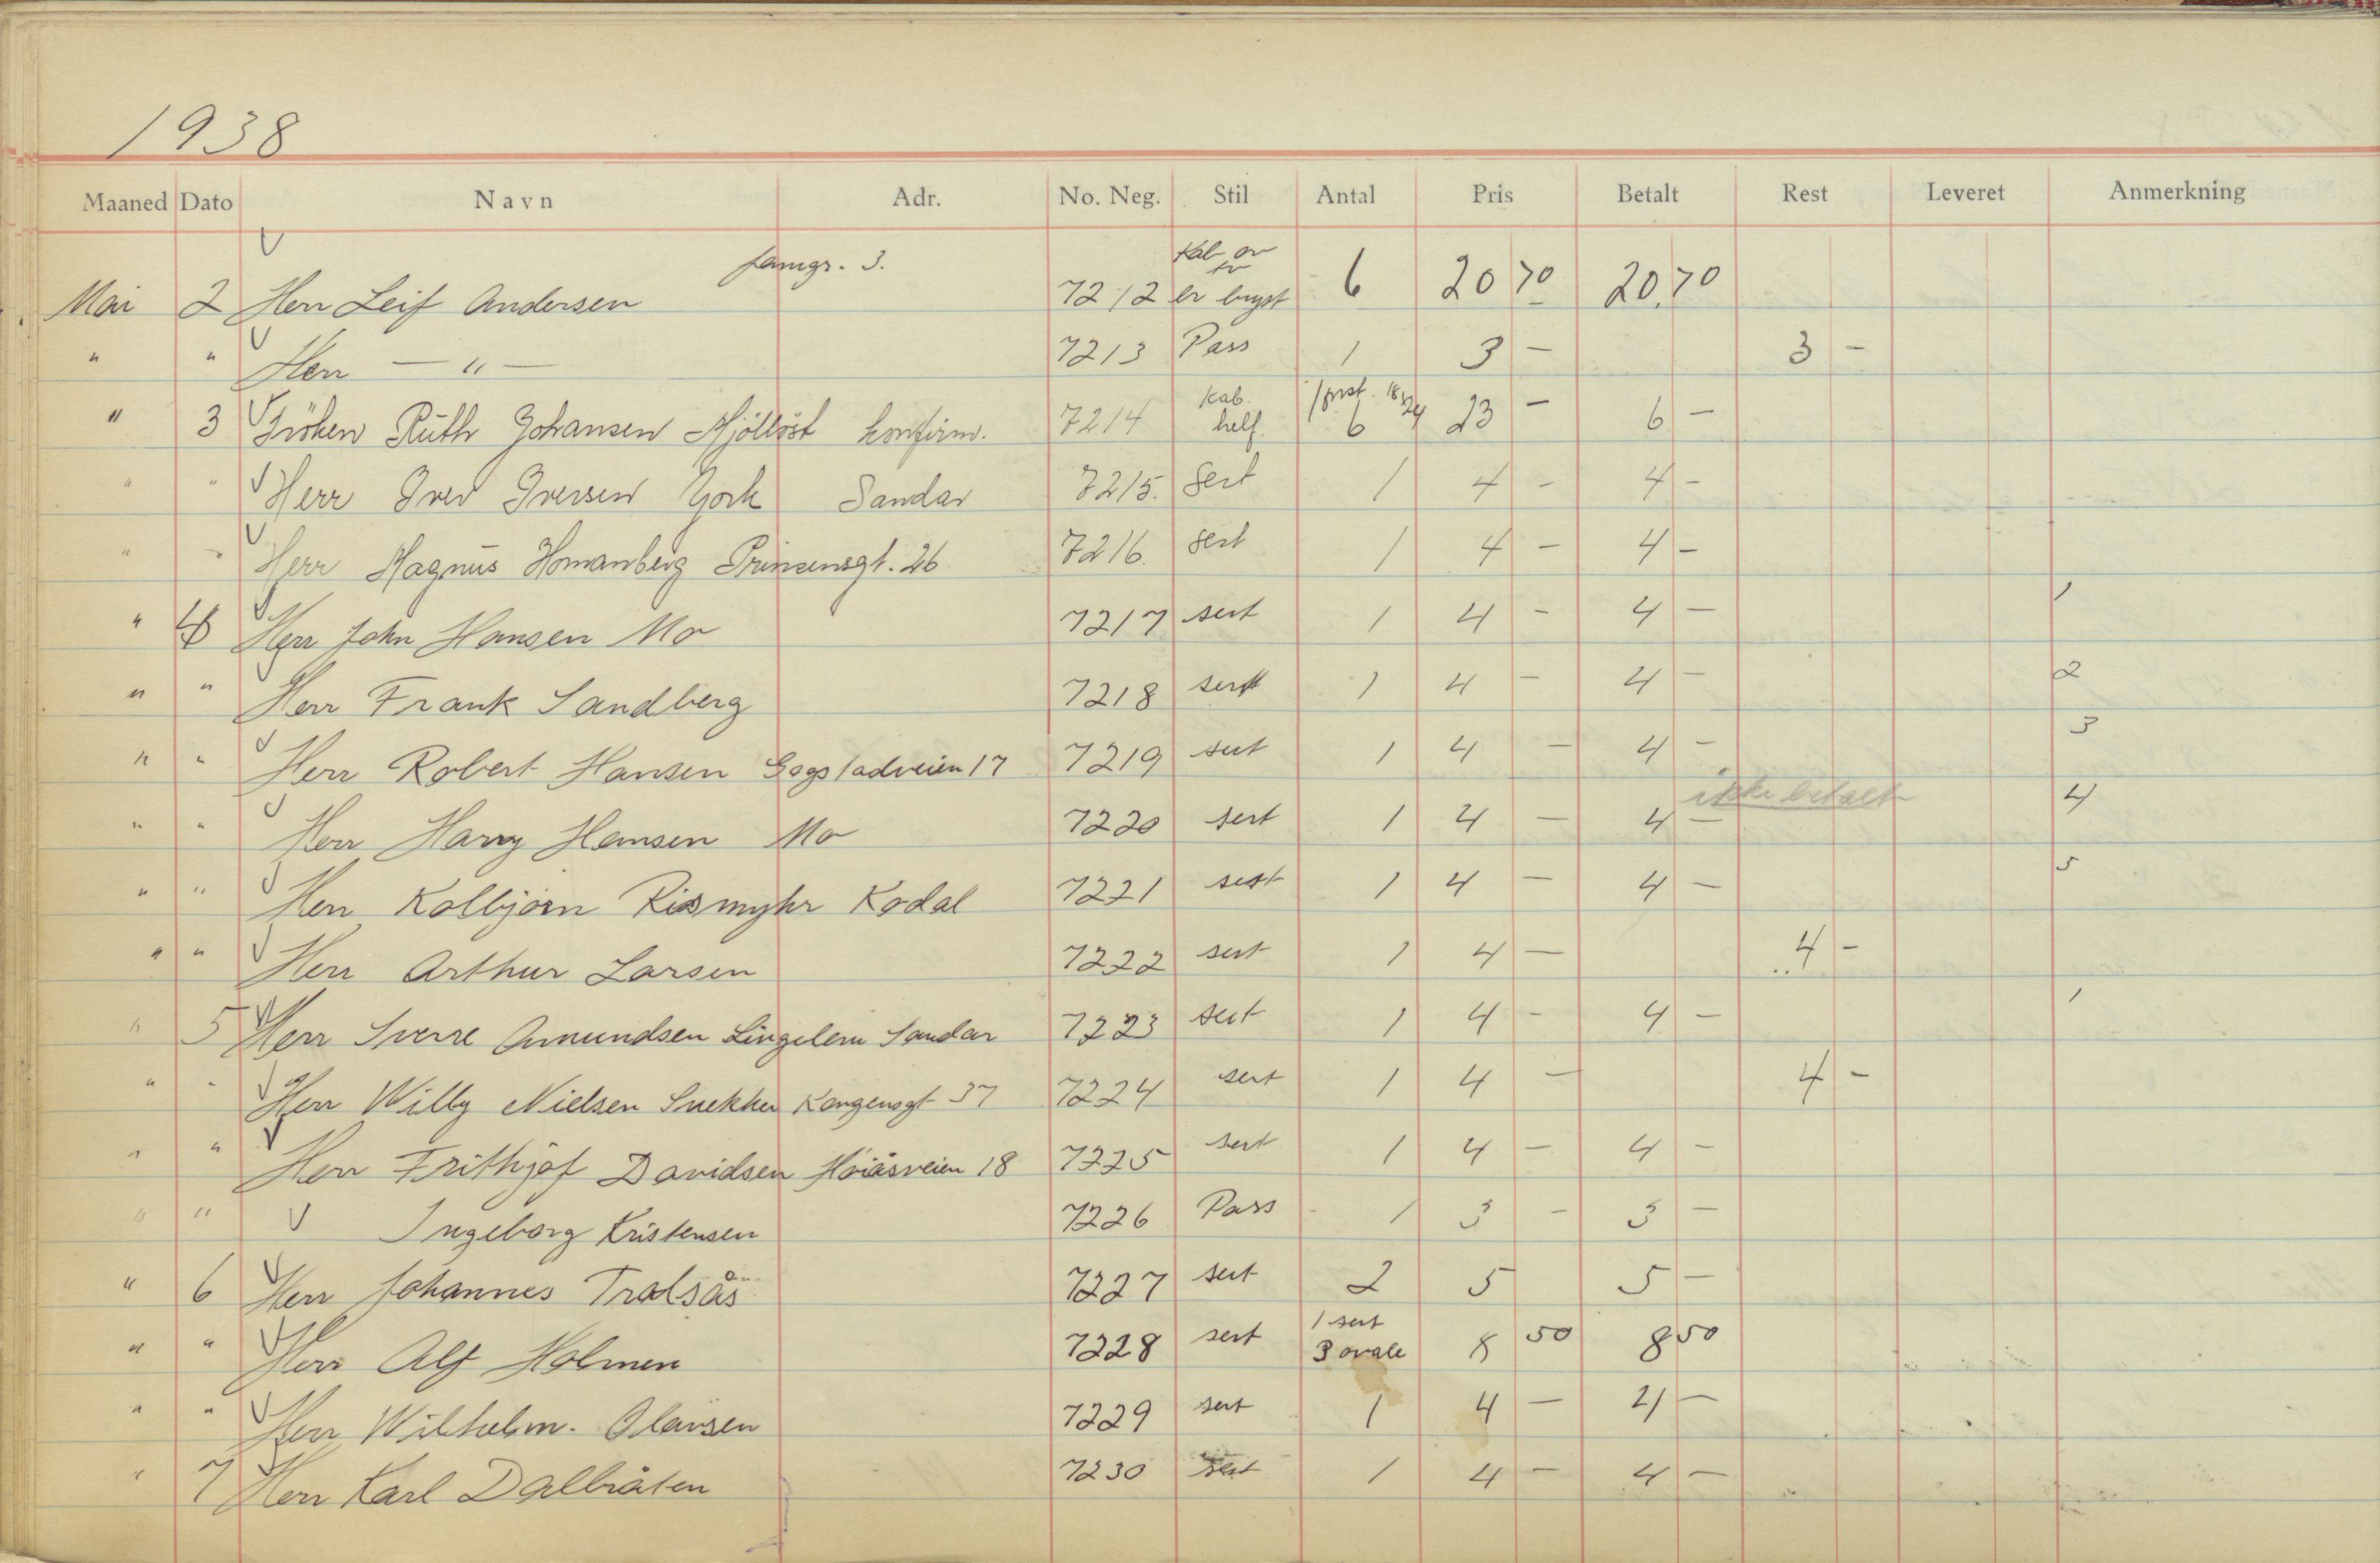 1938
Maaned Dato Navn Adr. No. Neg. Stil Antal Pris Betalt Rest Leveret Anmerkning
famgr. 3. Kab
Mai 2 Herr Leif Andersen 7212 er 6 20 70 20,70
" " Herr — " — 7213 Pass 1 3 - 3 -
kab. 1 prøt. 18/24
" 3 Fröken Ruth Johansen Mjöllöst konfirm. 7214 helf. 6 23 - 6 -
" " Herr Iver Iversen York Sandar 7215. Sert 1 4 - 4 -
" " Herr Magnus Homanberg Prinsensgt. 26 7216. Sert 1 4 - 4 -
" 4 Herr John Hansen Mo 7217 sert 1 4 - 4 - 1
" " Herr Frank Sandberg 7218 sert 1 4 - 4 - 2
" " Herr Robert Hansen Gogstadveien 17 7219 sert 1 4 - 4 - 3
" " Herr Harry Hansen Mo 7220 sert 1 4 - 4 - ikke betalt 4
" " Herr Kolbjørn Rismyhr Kodal 7221 sert 1 4 - 4 - 5
" " Herr Arthur Larsen 7222 sert 1 4 - 4 -
" 5 Herr Sverre Amundsen Lingelem Sandar 7223 sert 1 4 - 4 - 1
" " Herr Willy Nielsen Snekker Kongensgt 37 7224 sert 1 4 - 4 -
" " Herr Frithjof Davidsen Höiåsveien 18 7225 sert 1 4 - 4 -
" " Ingeborg Kristensen 7226 Pass 1 3 - 3 -
" 6 Herr Johannes Tralsås 7227 sert 2 5 5 -
1 sert
" " Herr Alf Holmen 7228 sert 3 ovale 8 50 8 50
" " Herr Wilhelm. Olavsen 7229 sert 1 4 - 4 -
" 7 Herr Karl Dalbråten 7230 sert 1 4 - 4 -